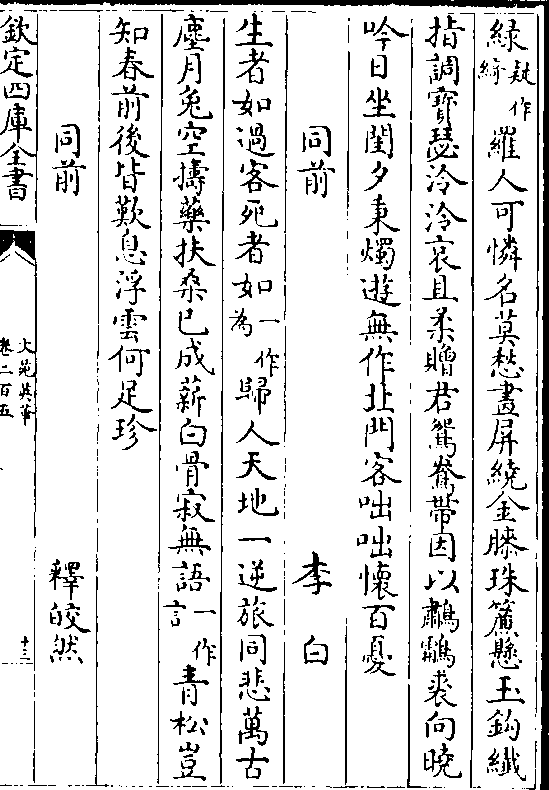 綠疑作綺羅人可憐名莫愁畫屏繞金縢珠簾懸玉鈎纎
指調寶瑟泠泠哀且柔贈君鴛鴦帶因以鷫鸘裘向曉
吟日坐閨夕秉燭遊無作北門客咄咄懷百憂
同前 李白
生者如過客死者如一作為歸人天地一逆旅同悲萬古
塵月兔空擣藥扶桑已成薪白骨寂無語一作言青松豈
知春前後皆歎息浮雲何足珍
同前 釋皎然
欽定四庫全書 文苑英華 卷二百五 十三